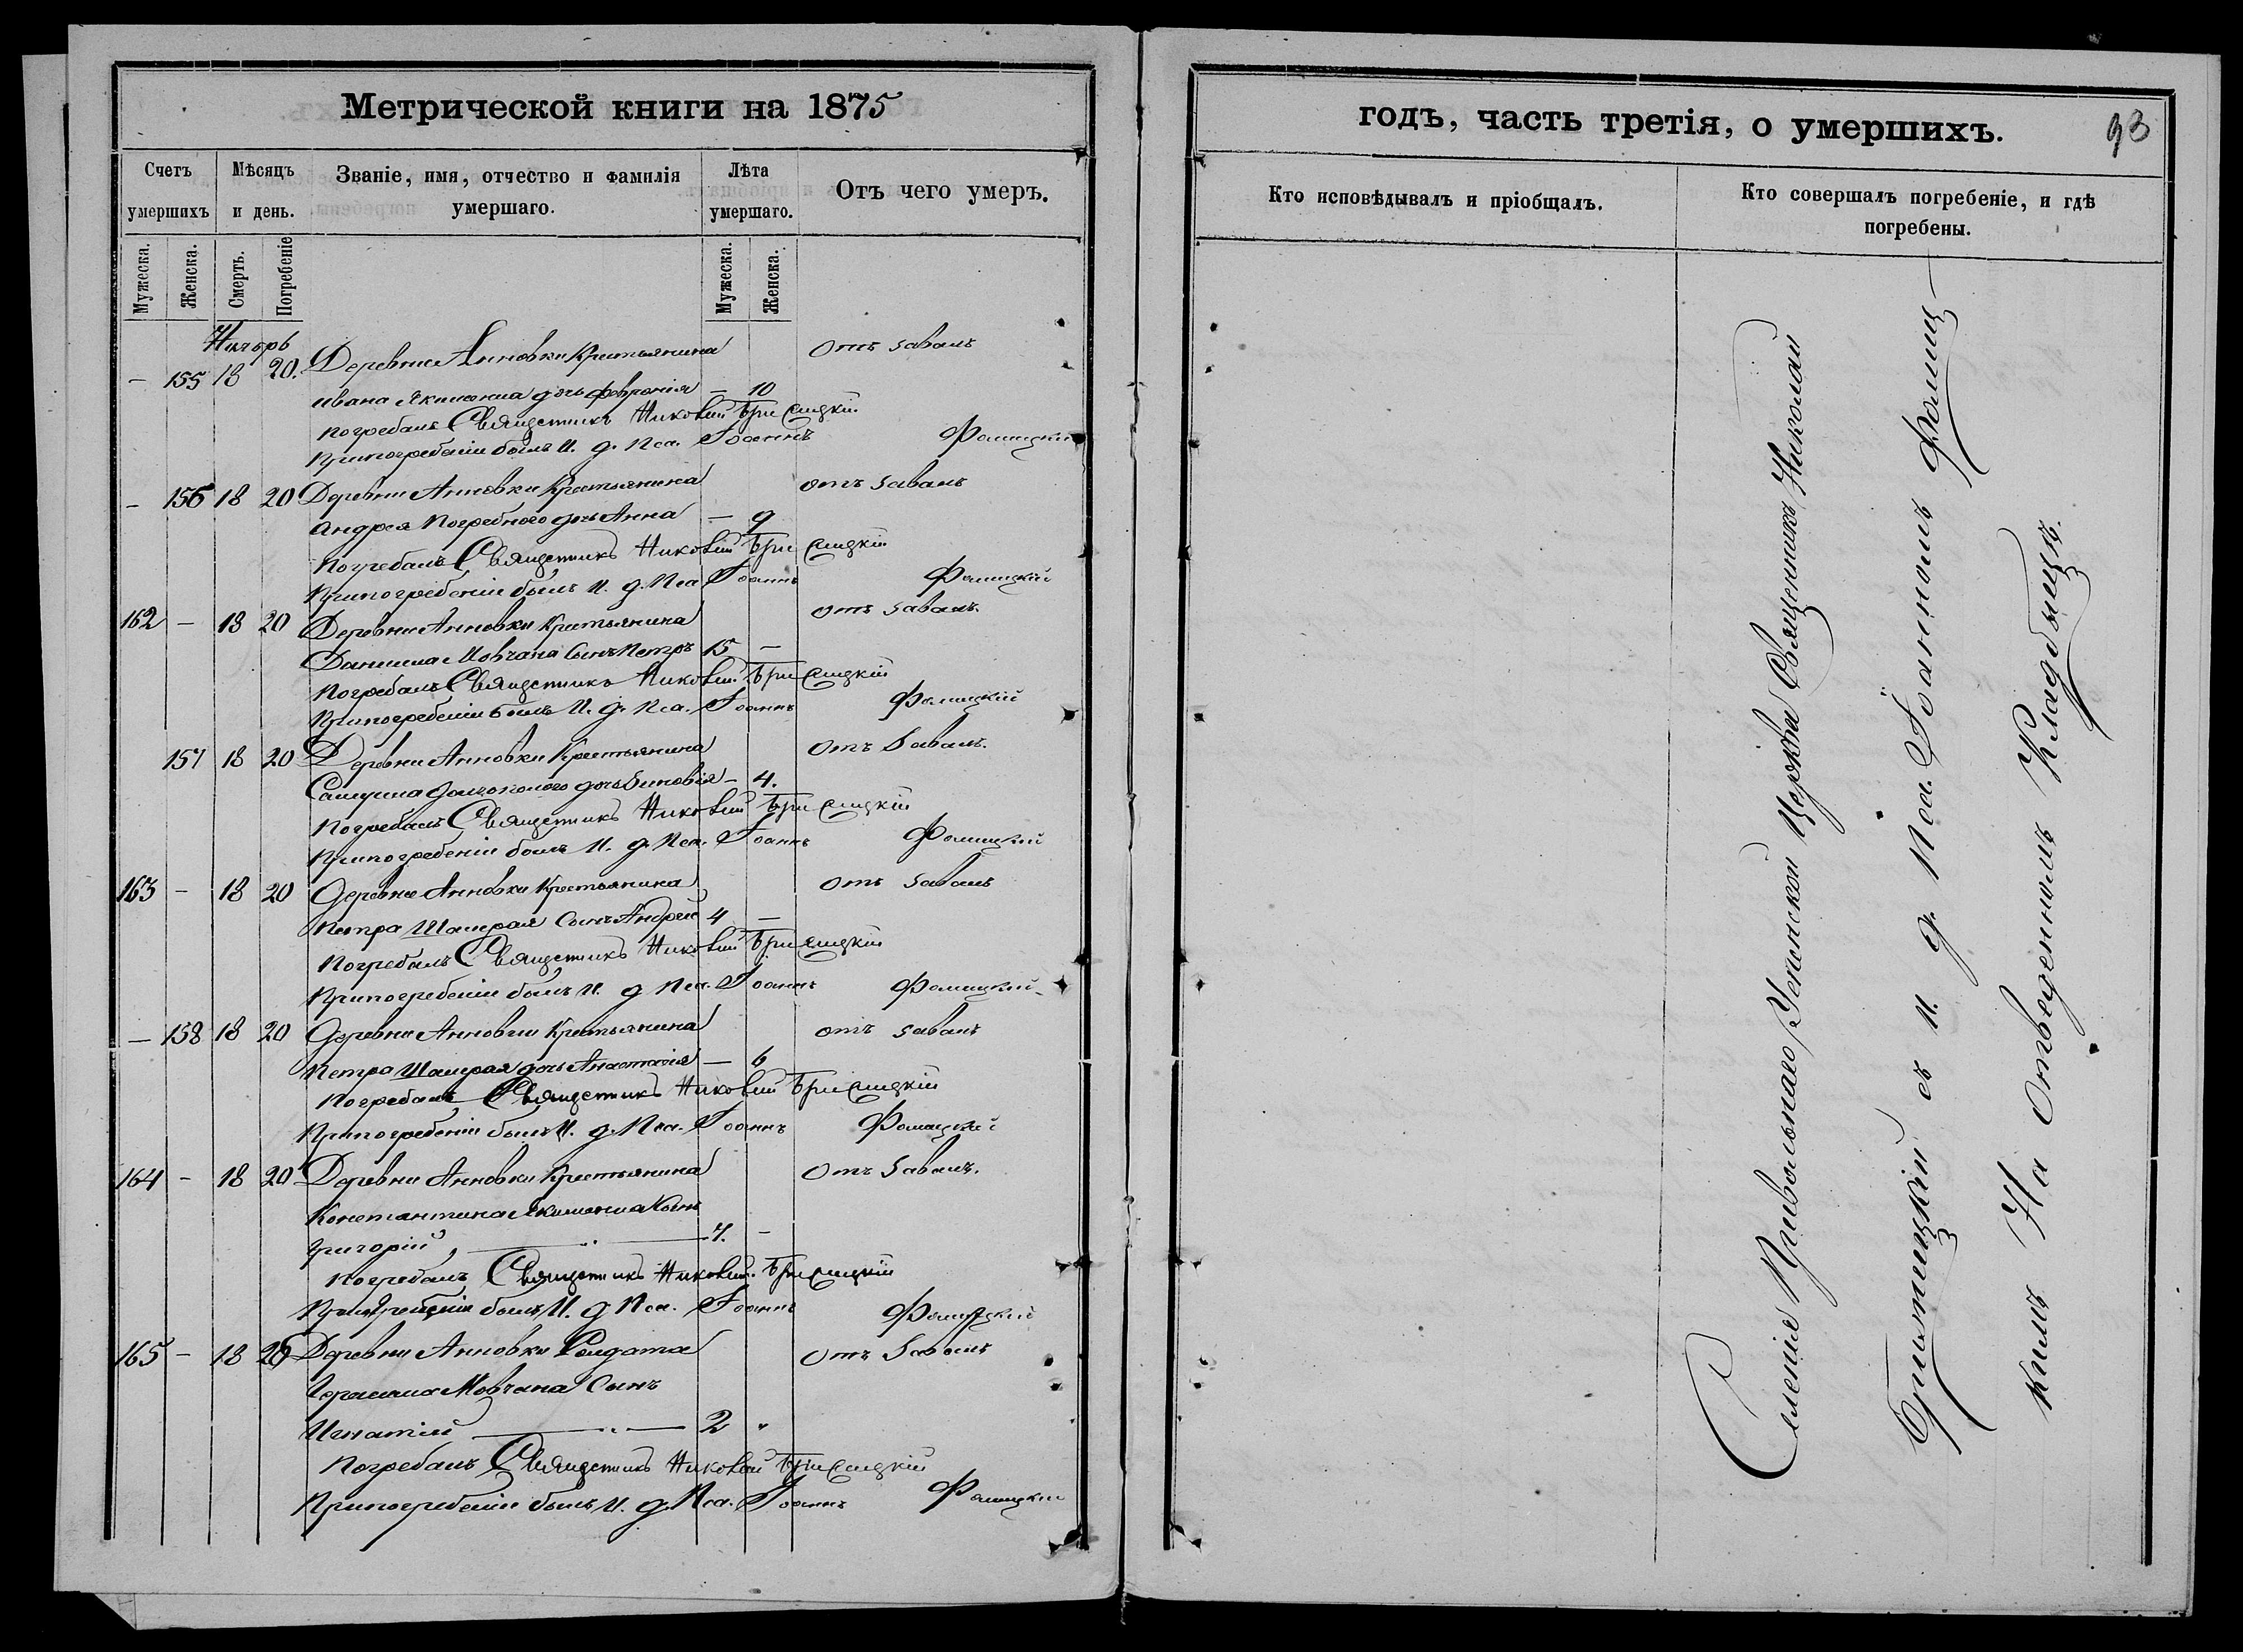 Метрической книги на 1875
Счетъ умершихъ
Мѣсяцъ и день.
Званіе, имя, отчество и фамилія умершаго.
Лѣта умершаго.
Отъ чего умеръ.
Мужеска. Женска. Смерть. Погребеніе Мужеска. Женска.
— 155 18 20. Деревни Анновки Крестьянина отъ завалъ
Ивана Якименка дочь Февронія — 10
погребалъ Священникъ Николай
При погребеніи былъ И. д. Пса. Іоаннъ Фомицкій
— 156 18 20 Деревни Анновки Крестьянина отъ завалъ
Андрея Погребного дочь Анна — 9
Погребалъ Священникъ Николай
При погребеніи былъ И. д. Пса Іоаннъ Фомицкій
162 — 18 20 Деревни Анновки Крестьянина отъ завалъ.
Даниила Мовчана Сынъ Петръ 15 —
Погребалъ Священникъ Николай
При погребеніи былъ И. д. Пса. Іоаннъ Фомицкій
157 18 20 Деревни Анновки Крестьянина Отъ Завалъ.
Самуила дочь Зиновія — 4.
Погребалъ Священникъ Николай
При погребеніи былъ И. д. Пса. Іоаннъ Фомицкій
163 — 18 20 Деревни Анновки Крестьянина отъ завалъ
Петра Шамрая Сынъ Андрей 4 —
Погребалъ Священникъ Николай
При погребеніи былъ И. д Пса. Іоаннъ Фомицкій
— 158 18 20 Деревни Анновки Крестьянина отъ завалъ
Петра Шамрая дочь Анастасія — 6
Погребалъ Священникъ Николай
При погребеніи былъ И. д. Пса. Іоаннъ Фомицкій
164 — 18 20 Деревни Анновки Крестьянина Отъ Завалъ.
Константина Якименка Сынъ
Григорій —
Погребалъ Священникъ Николай
При погребеніи былъ И. д Пса. Іоаннъ Фомицкій
165 — 18 20 Деревни Анновки Солдата Отъ Завалъ
Герасима Мовчана Сынъ
Игнатій 2 "
Погребалъ Священникъ Николай
При погребеніи былъ И. д. Пса. Іоаннъ Фомицкій
годъ, часть третія, о умершихъ. 93
Кто исповѣдывалъ и пріобщалъ.
Кто совершалъ погребеніе, и гдѣ погребены.
Селенія Привольнаго Успенской Церкви Священникъ Николай
съ и. д. Пса. Іоанномъ Фомиц-
кимъ На Отведенномъ Кладбищѣ.